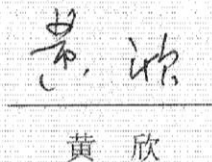 黄欣
黄 欣